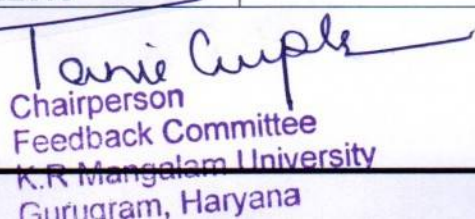 Tanie Gupta
Chairperson
Feedback Committee
K.R Mangalam University
Gurugram, Haryana